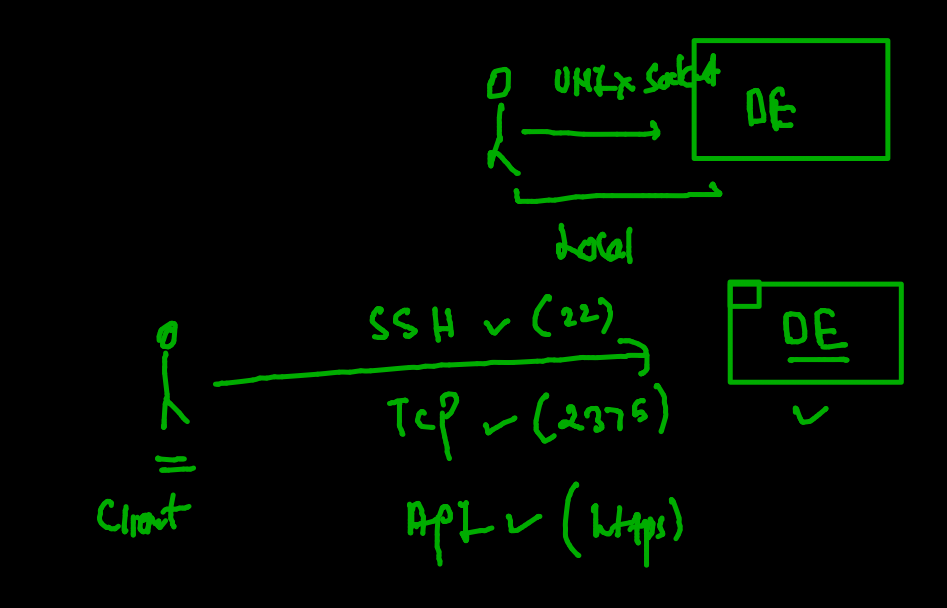 UNIX Socket
DE
Local
SSH ✓ (22)
DE
TCP ✓ (2375)
Client
API ✓ (https)